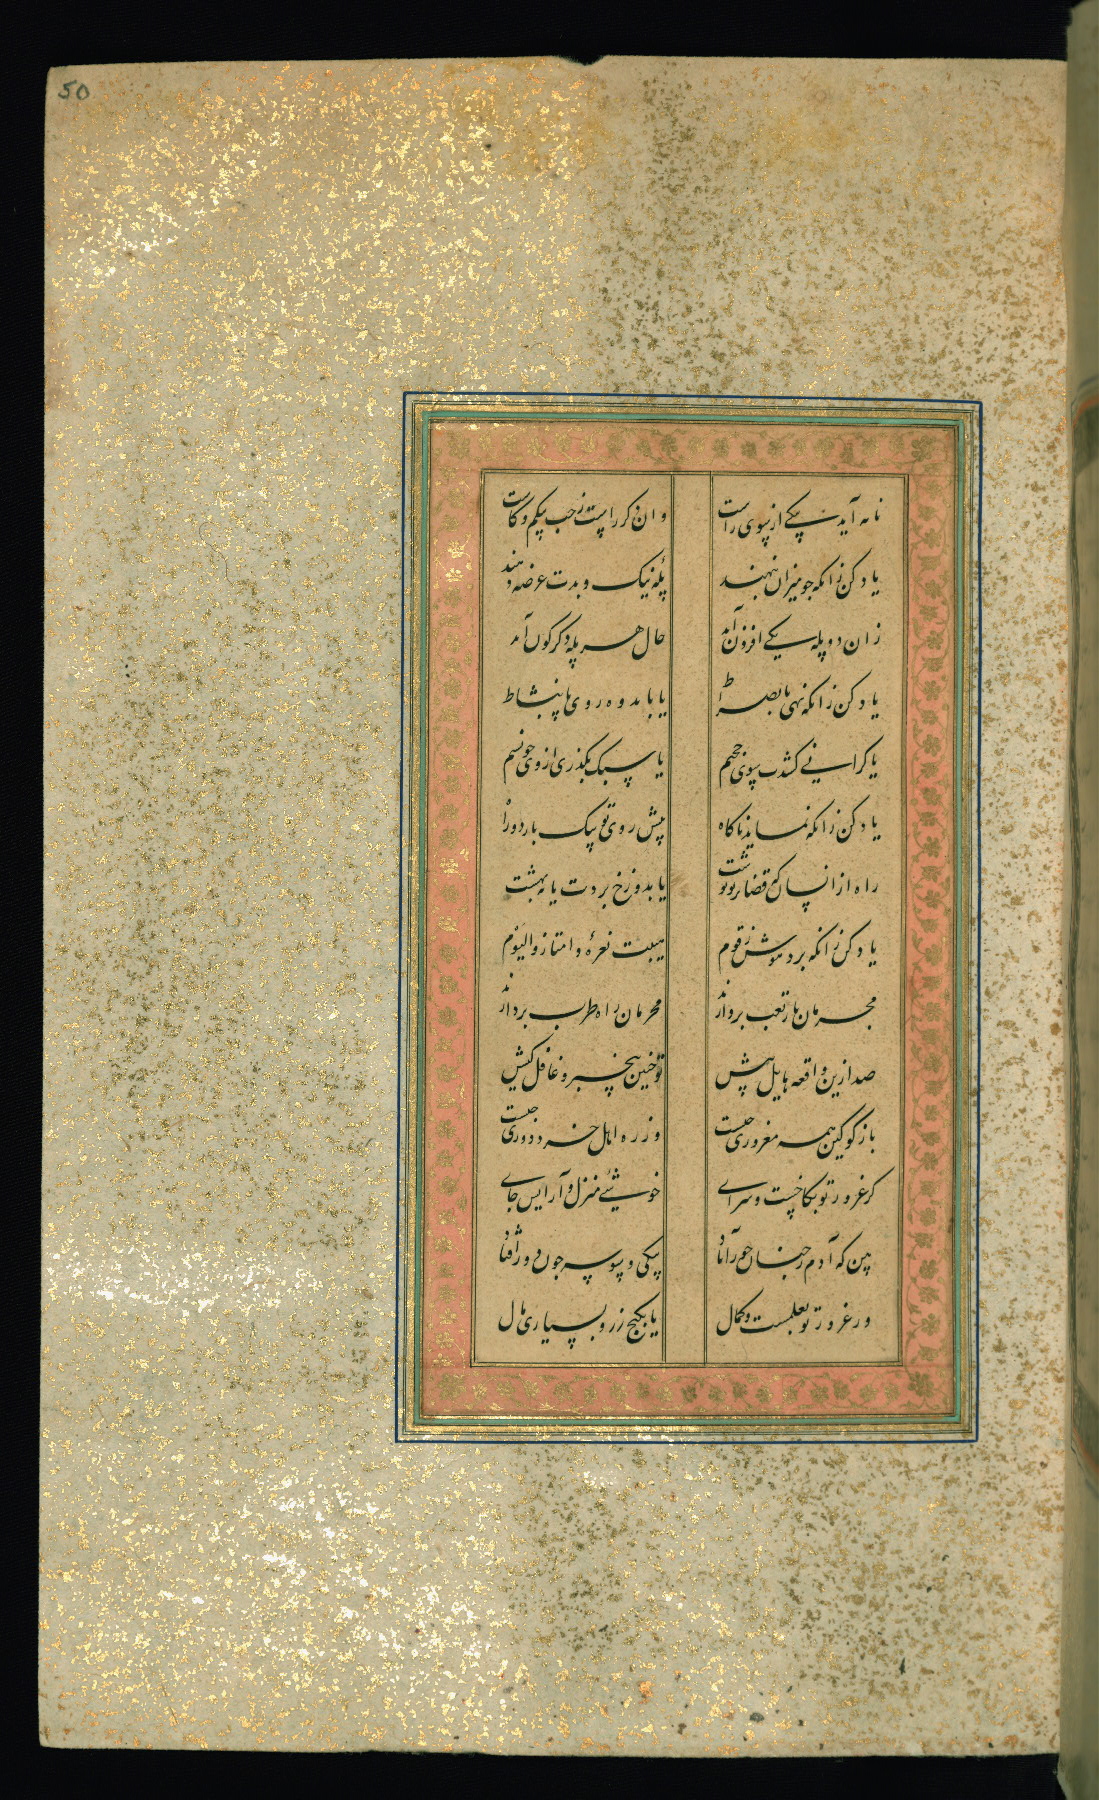 50
نامه آید یکی از سوی راست
وان دکر را پست زحب بیکم وکاست
یاد کن زانکه جو میزان بنهند
پلهٔ نیک و بدت عرضه دهند
زان دو پله یکے افزون آمد
حال هر پله دکرکون آمد
یاد کن زانکه نهی پا بصراط
یا باید وه روی یا بنشاط
یا کرانے کشدت سوی جحیم
یا سبک بکذری از وی جو نسیم
یاد کن زانکه نماید ناکاه
پیش روی تو بیک بار دوراه
راه ازانسان که قضا بر تو نوشت
یا بدوزخ بردت یا به بهشت
یاد کن زانکه برد هوش ز قوم
هیبت نعرهٔ وامتازوا الیوم
مجرمان بار تعب بردارند
محرمان راه طرب بردارند
صد ازین واقعه هایل پیش
تو جنین بیخبر و غافل کیش
باز کو کین همه مغروری جیست
وز ره اهل خرد دوری جیست
کر غرور تو بکاخست و سرای
خوشے منزل و آرایس جای
بین که آدم ز جنان حورآباد
بیکی وسوسه جون دور افتاد
ور غرور تو بعلمست و کمال
یا بکنج زر و بسیاری مال